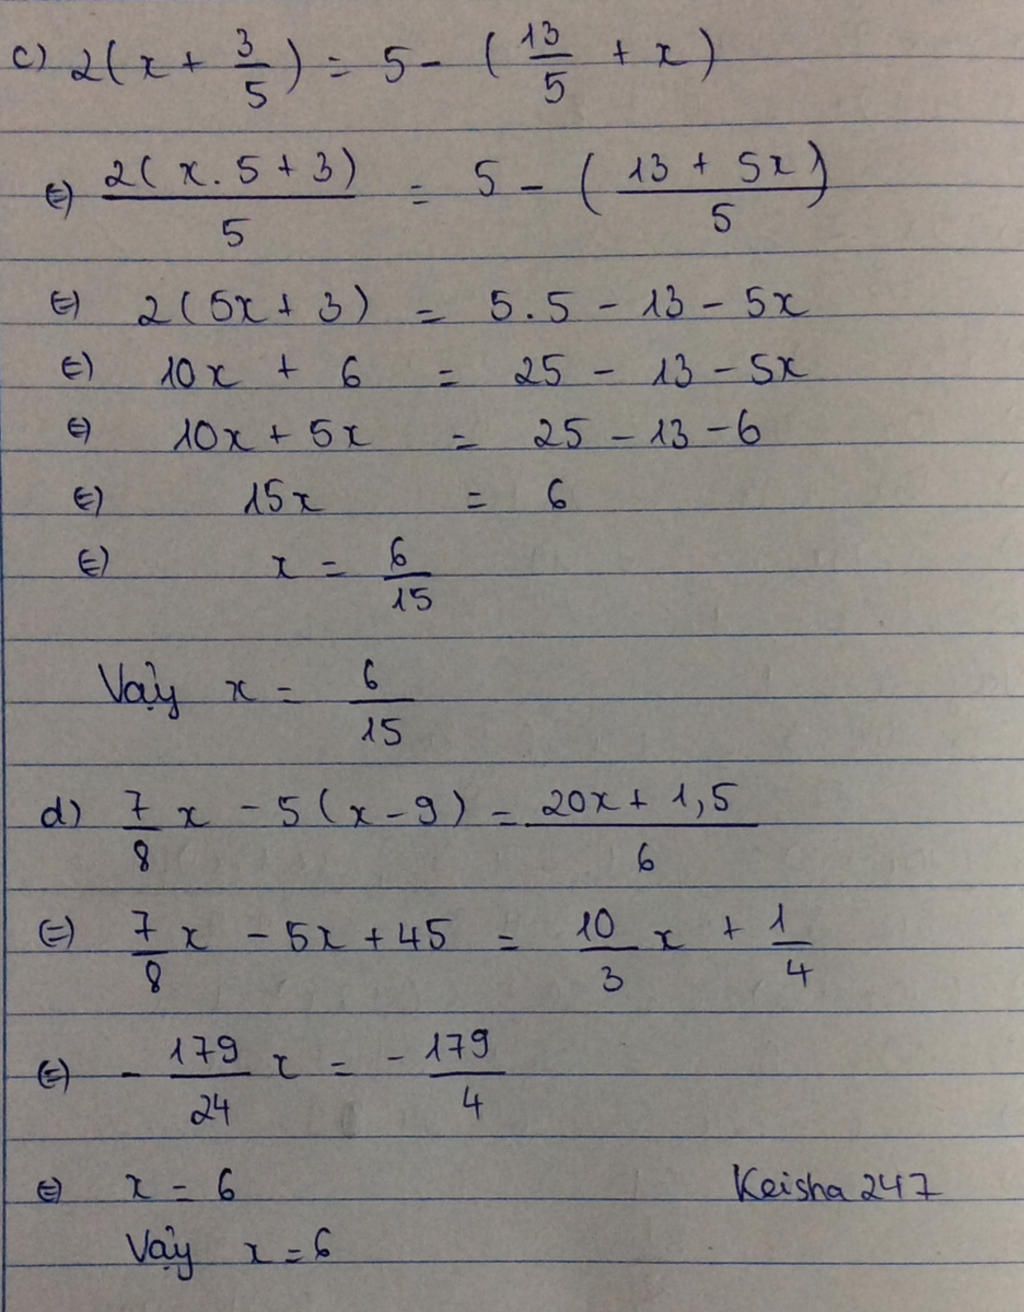 c) 2(x + 3/5) = 5 - (13/5 + x)
⇔ 2(x.5 + 3)/5 = 5 - (13 + 5x)/5
⇔ 2(5x + 3) = 5.5 - 13 - 5x
⇔ 10x + 6 = 25 - 13 - 5x
⇔ 10x + 5x = 25 - 13 - 6
⇔ 15x = 6
⇔ x = 6/15
Vậy x = 6/15
d) 7/8 x - 5(x - 9) = (20x + 1,5)/6
⇔ 7/8 x - 5x + 45 = 10/3 x + 1/4
⇔ - 179/24 x = - 179/4
⇔ x = 6
Keisha 247
Vậy x = 6